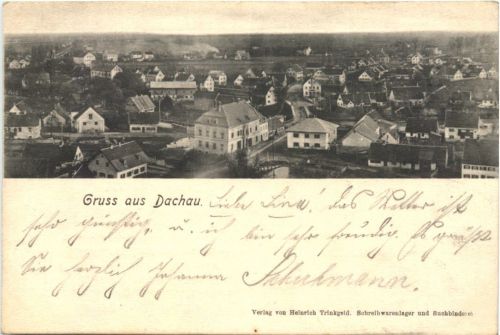 Gruss aus Dachau. Liebe Lina! das Wetter ist
sehr günstig, u. ich bin sehr freudig. Es grüßt
Sie herzlich Johanna Schuhmann.
Verlag von Heinrich Trinkgeld, Schreibwarenlager und Buchbinderei